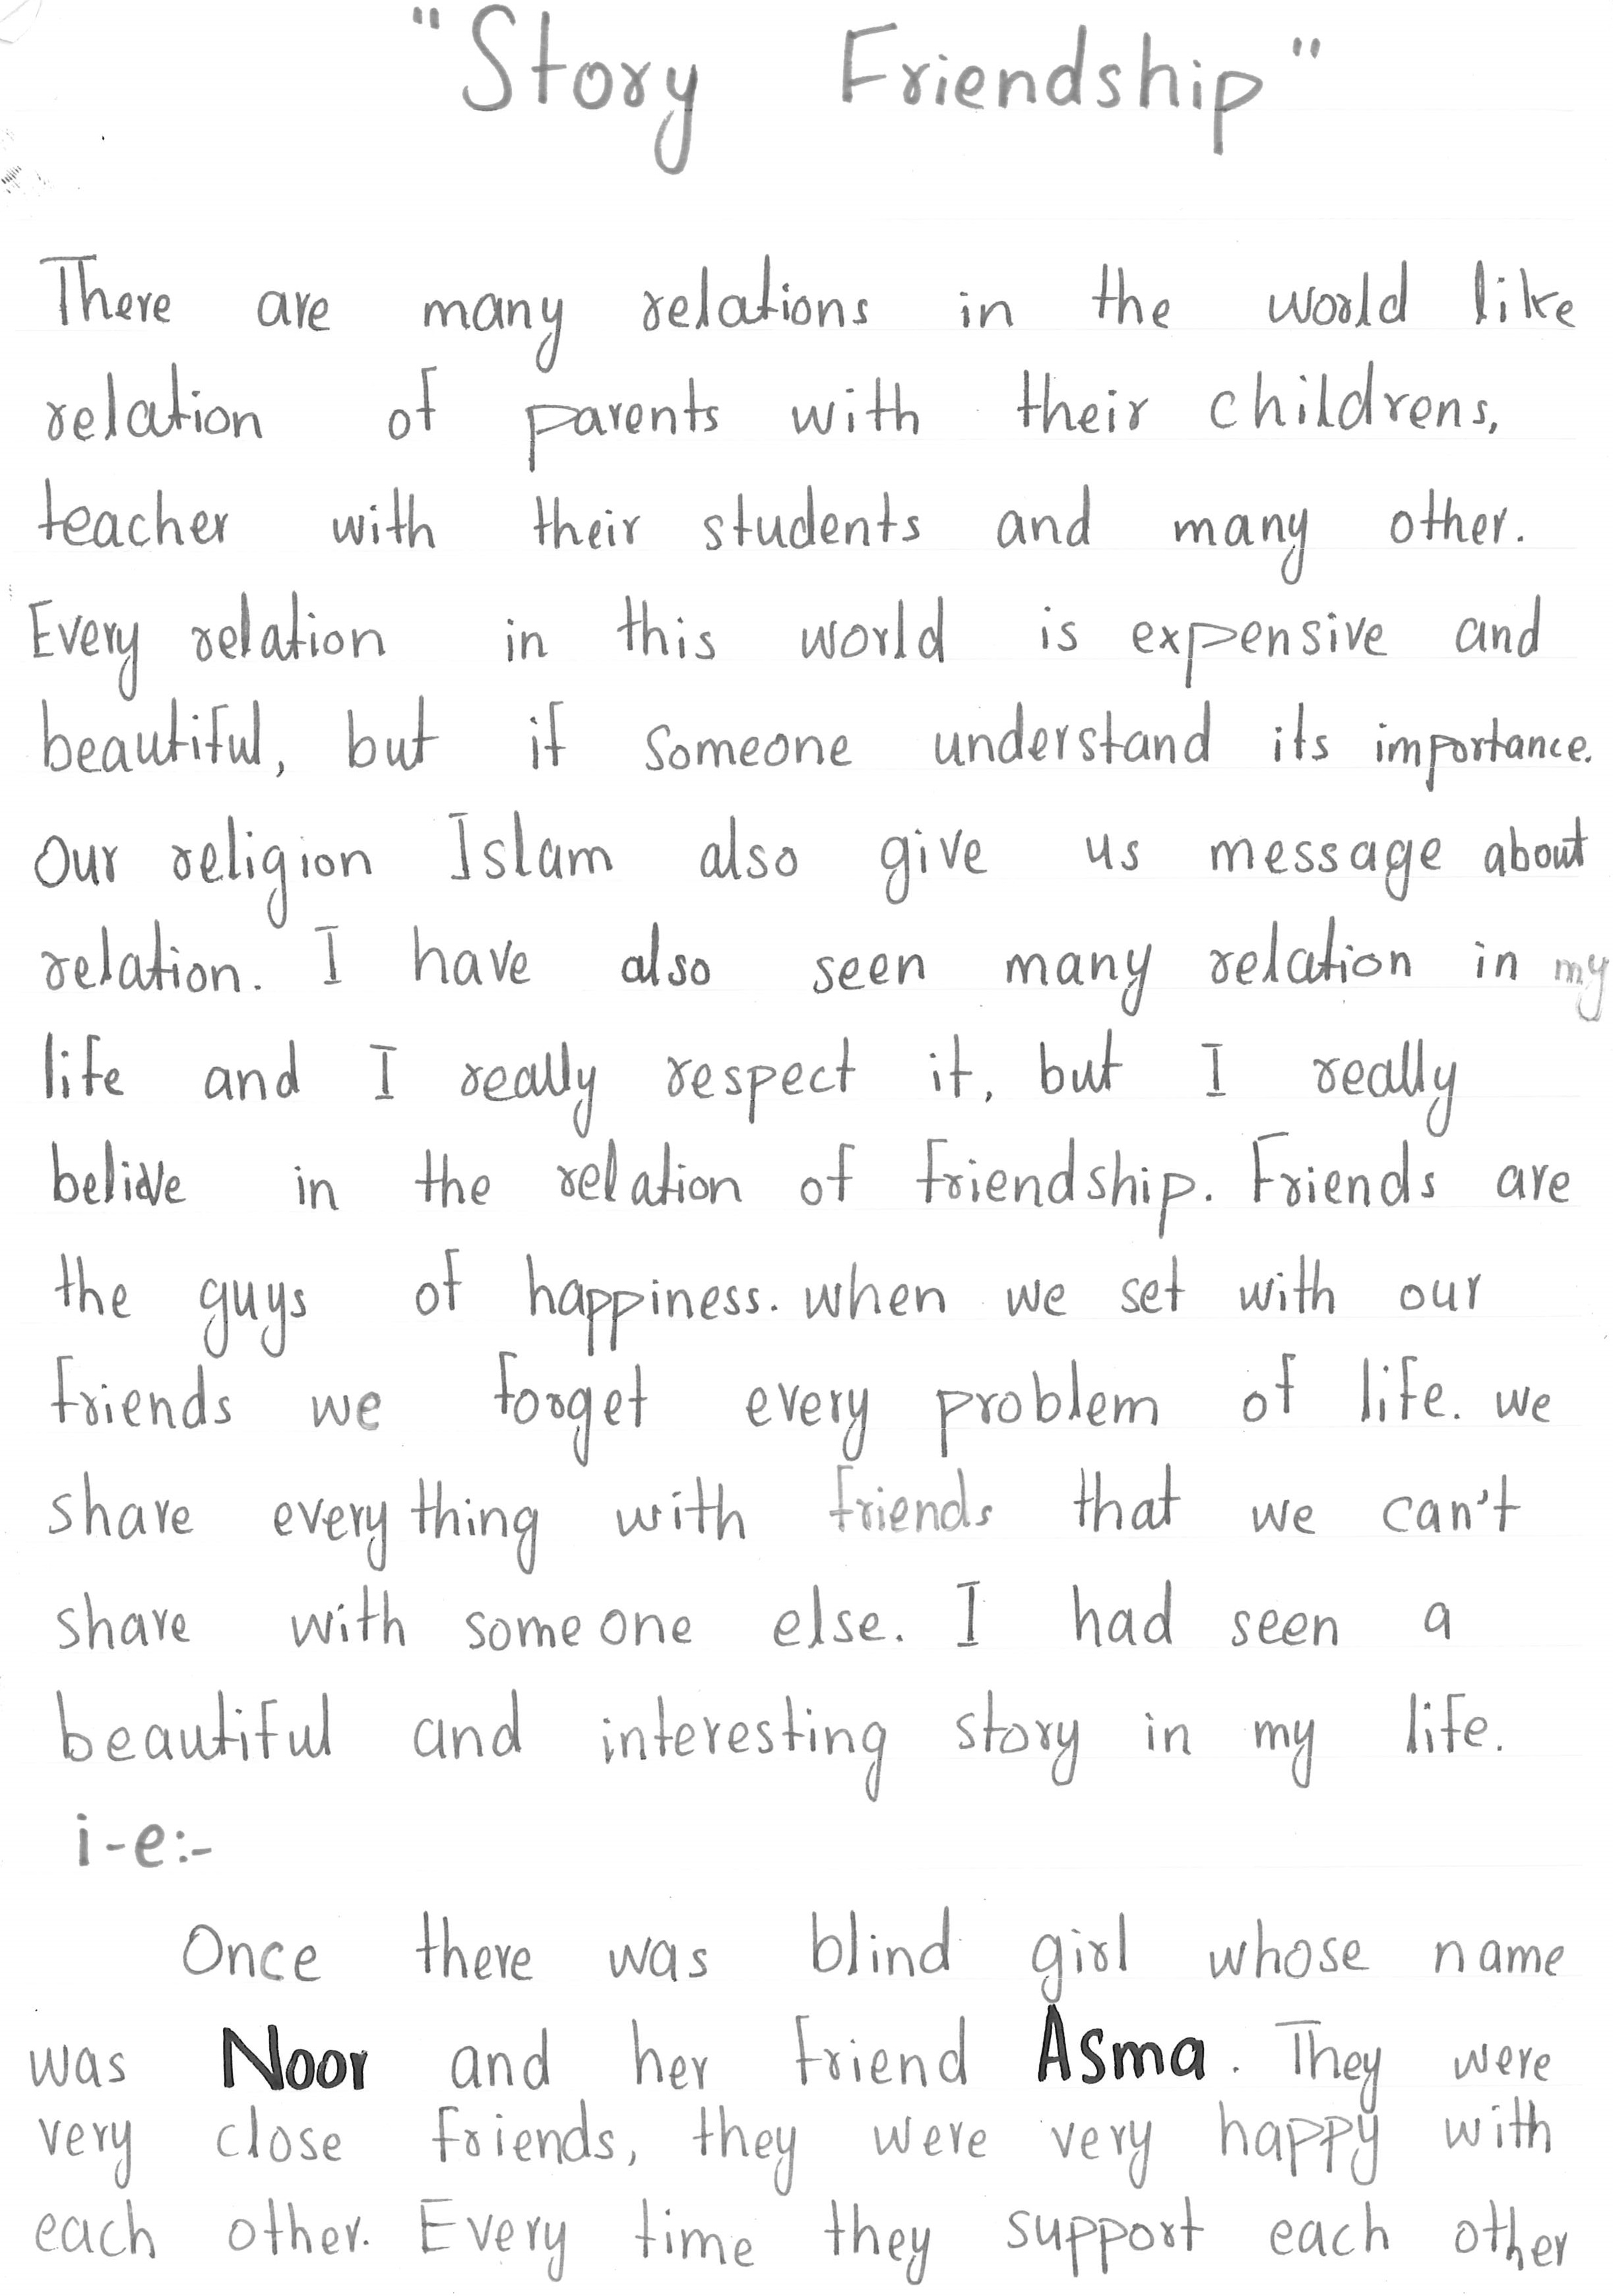 "Story Friendship"
There are many relations in the world like
relation of parents with their childrens,
teacher with their students and many other.
Every relation in this world is expensive and
beautiful, but if someone understand its importance.
Our religion Islam also give us message about
relation. I have also seen many relation in my
life and I really respect it, but I really
belive in the relation of friendship. Friends are
the guys of happiness. when we set with our
friends we forget every problem of life. we
share every thing with friends that we can't
share with some one else. I had seen a
beautiful and interesting story in my life.
i-e:-
Once there was blind girl whose name
was Noor and her friend Asma. They were
very close friends, they were very happy with
each other. Every time they support each other